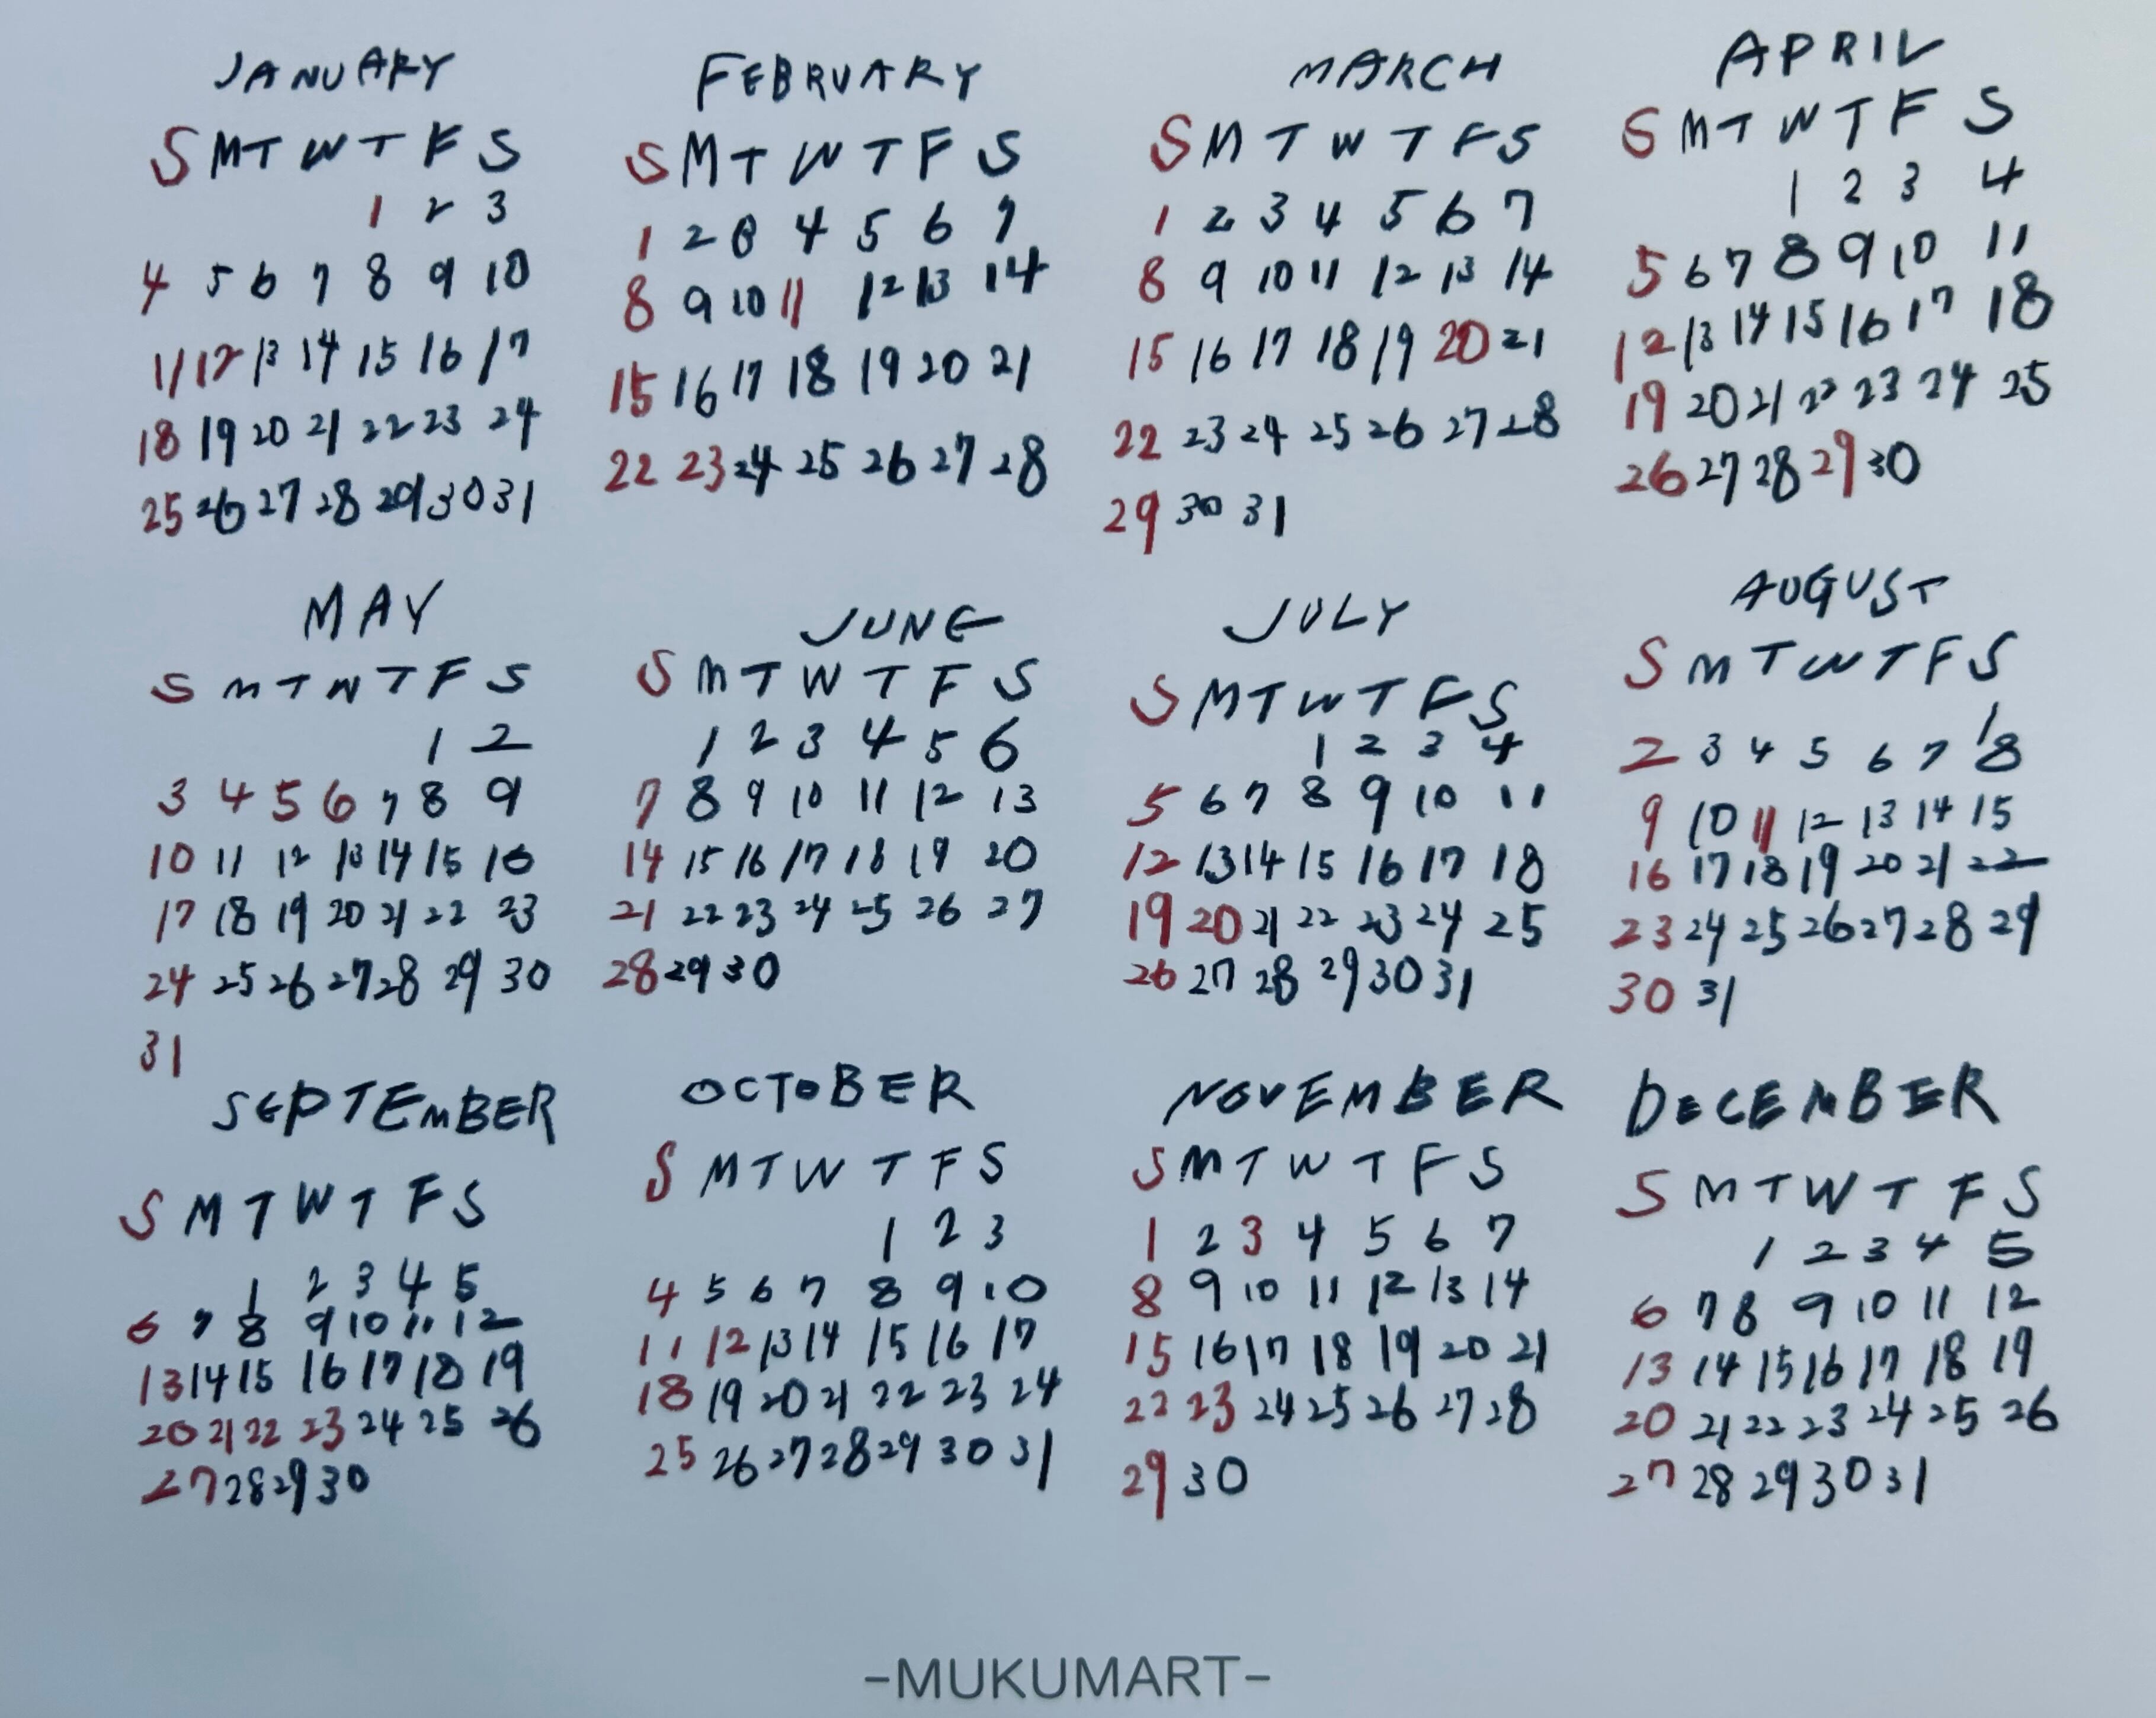 JANUARY
S M T W T F S
1 2 3
4 5 6 7 8 9 10
11 12 13 14 15 16 17
18 19 20 21 22 23 24
25 26 27 28 29 30 31
FEBRUARY
S M T W T F S
1 2 3 4 5 6 7
8 9 10 11 12 13 14
15 16 17 18 19 20 21
22 23 24 25 26 27 28
MARCH
S M T W T F S
1 2 3 4 5 6 7
8 9 10 11 12 13 14
15 16 17 18 19 20 21
22 23 24 25 26 27 28
29 30 31
APRIL
S M T W T F S
1 2 3 4
5 6 7 8 9 10 11
12 13 14 15 16 17 18
19 20 21 22 23 24 25
26 27 28 29 30
MAY
S M T W T F S
1 2
3 4 5 6 7 8 9
10 11 12 13 14 15 16
17 18 19 20 21 22 23
24 25 26 27 28 29 30
31
JUNE
S M T W T F S
1 2 3 4 5 6
7 8 9 10 11 12 13
14 15 16 17 18 19 20
21 22 23 24 25 26 27
28 29 30
JULY
S M T W T F S
1 2 3 4
5 6 7 8 9 10 11
12 13 14 15 16 17 18
19 20 21 22 23 24 25
26 27 28 29 30 31
AUGUST
S M T W T F S
1
2 3 4 5 6 7 8
9 10 11 12 13 14 15
16 17 18 19 20 21 22
23 24 25 26 27 28 29
30 31
SEPTEMBER
S M T W T F S
1 2 3 4 5
6 7 8 9 10 11 12
13 14 15 16 17 18 19
20 21 22 23 24 25 26
27 28 29 30
OCTOBER
S M T W T F S
1 2 3
4 5 6 7 8 9 10
11 12 13 14 15 16 17
18 19 20 21 22 23 24
25 26 27 28 29 30 31
NOVEMBER
S M T W T F S
1 2 3 4 5 6 7
8 9 10 11 12 13 14
15 16 17 18 19 20 21
22 23 24 25 26 27 28
29 30
DECEMBER
S M T W T F S
1 2 3 4 5
6 7 8 9 10 11 12
13 14 15 16 17 18 19
20 21 22 23 24 25 26
27 28 29 30 31
-MUKUMART-